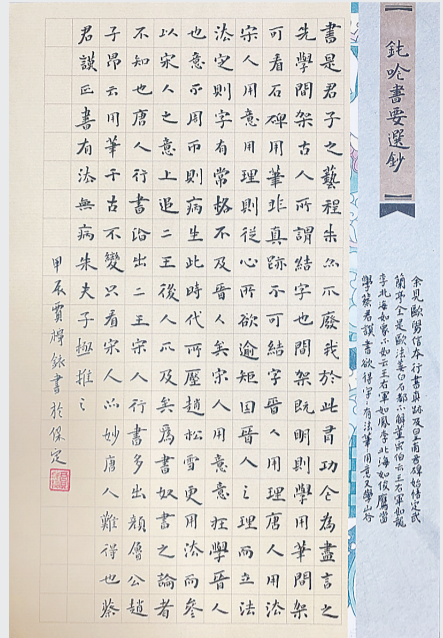 鈍吟書要選鈔
余見歐陽信本行書真跡及皇甫君碑始悟定武
蘭亭全是歐法姜白石都不解董宗伯云王右軍如龍
李北海如象不如云王右軍如鳳李北海如俊鷹當
學蔡君謨書欲得字〻有法筆用意又學山谷
書是君子之藝程朱亦不廢我於此有功今為盡言之
先學間架古人所謂結字也間架既明則學用筆間架
可看石碑用筆非真跡不可結字晉人用理唐人用法
宋人用意用理則從心所欲逾矩因晉人之理而立法
法定則字有常格不及晉人矣宋人用意意在學晉人
也意不周而則病生此時代所壓趙松雪更用法而參
以宋人之意上追二王後人不及矣為書奴書之論者
不知也唐人行書皆出二王宋人行書多出顏魯公趙
子昂云用筆千古不變只看宋人亦妙唐人難得也蔡
君謨正書有法無病朱夫子極推之
甲辰賈樺錄書於保定